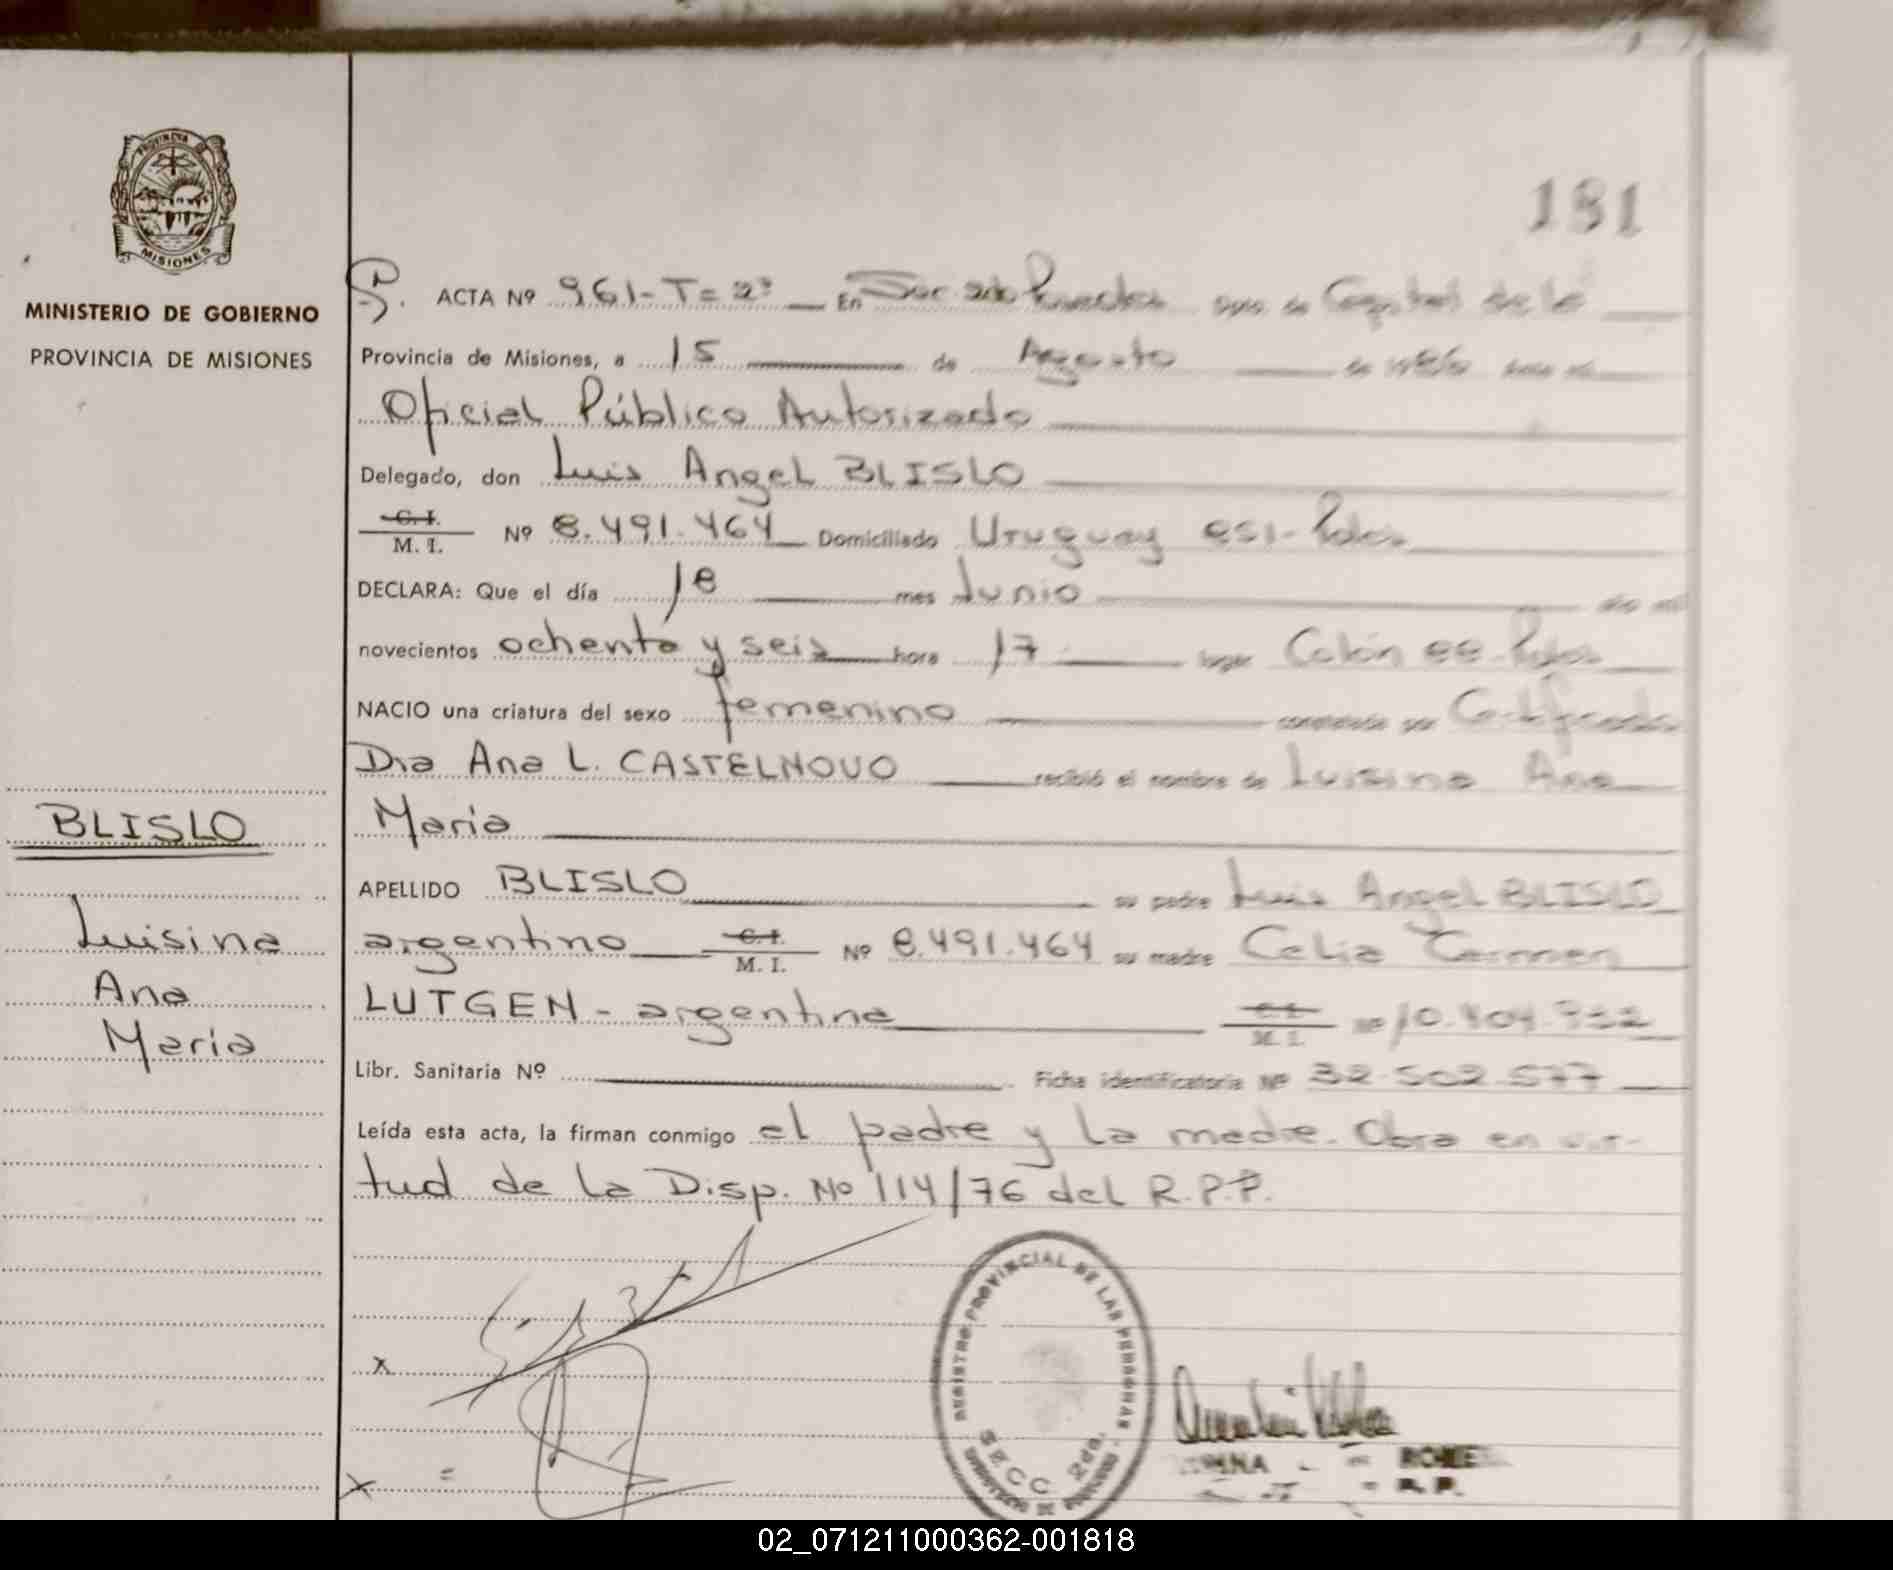 PROVINCIA DE
MISIONES
MINISTERIO DE GOBIERNO
PROVINCIA DE MISIONES
181
ACTA Nº 961-T=2º En Sec 2da Posadas Capital de la
Provincia de Misiones, a 15 de Agosto de
Oficial Público Autorizado
Delegado, don Luis Angel BLISLO
C. I.
M. I. Nº 8.491.464 Domiciliado Uruguay 851-Pdas
DECLARA: Que el día 18 mes Junio año mil
novecientos ochenta y seis hora 17 lugar Colón 88-Pdas
NACIO una criatura del sexo femenino constatado por Certificado
Dra Ana L. CASTELNOVO recibió el nombre de Luisina Ana
Maria
APELLIDO BLISLO su padre Luis Angel BLISLO
argentino C. I.
M. I. Nº 8.491.464 su madre Celia Carmen
LUTGEN - argentina C. I.
M. I. Nº 10.404.932
Libr. Sanitaria Nº Ficha identificatoria Nº 32.502.577
Leída esta acta, la firman conmigo el padre y la madre. Obra en vir-
tud de la Disp. Nº 114/76 del R.P.P.
BLISLO
Luisina
Ana
Maria
REGISTRO PROVINCIAL DE LAS PERSONAS
SECC 2da.
R. P.
02_071211000362-001818